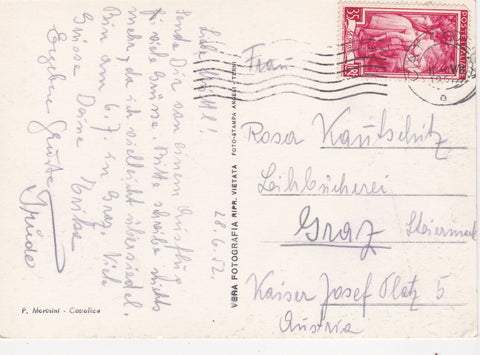 28.6.52.
Liebe
Sende Dir von einem Ausflug
viele Grüsse Bitte schreibe nichts
mehr, da ich vielleicht übersiedel.
Bin am 6.7. in Graz. Viele
Grüsse Deine
Ergebene Grüsse
Trude
P. Morosini - Cattolica
VERA FOTOGRAFIA RIPR. VIETATA FOTO-STAMPA ANGELI - TERNI
Frau
Rosa Kautschitz
Leihbücherei
Graz Steiermark
Kaiser Josef Platz 5
Austria